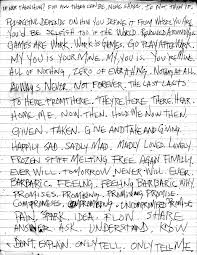 DEPENDS ON HOW YOU DEFINE IT FROM WHERE YOU ARE
YOU'D BE SELFISH TOO IN THE WORLD. REVOLVED AROUND ME
GAMES ARE WORK. WORK IS GAMES. GO PLAY AFTER WORK
MY YOU IS YOUR MINE. MY, YOU IS. YOU'RE MINE
ALL OF NOTHING, ZERO OF EVERYTHING. NOTHING AT ALL
ALWAYS NEVER NOT FOREVER. THE LAST LASTS
TO HERE FROM HERE. THEY'RE HERE THERE. HEAR
HOME ME. NOW. THEN. HOLD ME NOW THEN
GIVEN. TAKEN. GIVE AND TAKE AND GIVING.
HAPPILY SAD. SADLY MAD. MADLY LOVED. LOVELY
FROZEN STIFF MELTING FREE. AGAIN FINALLY.
EVER WILL. TOMORROW NEVER WILL EVER.
BARBARIC. FEELING. FEELING BARBARIC. WHY
PROMISES. PROMISING. PROMISING PROMISE.
COMPROMISES. COMPROMISING. UNCOMPROMISED PROMISE
PAIN. SPARK IDEA. FLOW SHARE
ANSWER ASK. UNDERSTAND. KNOW
DON'T EXPLAIN. ONLY TELL. ONLY TELL ME.